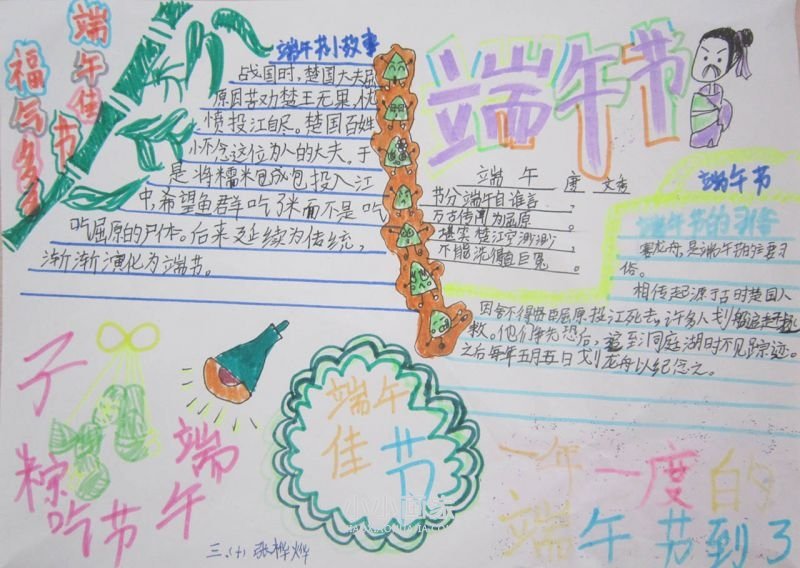 端午佳节
福气多多
端午节小故事
战国时,楚国大夫屈
原因苦劝楚王无果,忧
愤投江自尽。楚国百姓
小不忿这位为人的大夫。于
是将糯米包成包投入江
中希望鱼群吃了米而不是吃
吃屈原的尸体。后来延续为传统,
渐渐演化为端节。
端午节
端午 唐 文秀
节分端午自谁言,
万古传闻为屈原。
堪笑楚江空渺渺,
不能洗得直臣冤。
端午节
端午节的习俗
赛龙舟,是端午节的主要习
俗。
相传起源于古时楚国人
因舍不得贤臣屈原投江死去,许多人划船追赶拯
救。他们争先恐后,追至洞庭湖时不见踪迹。
之后每年五月五日划龙舟以纪念之。
端午
吃节
粽
子
端午
佳节
一年一度的
端午节到了
小小画家
XIAOXIAOHUAJIA.COM
三.(十) 张桦烨